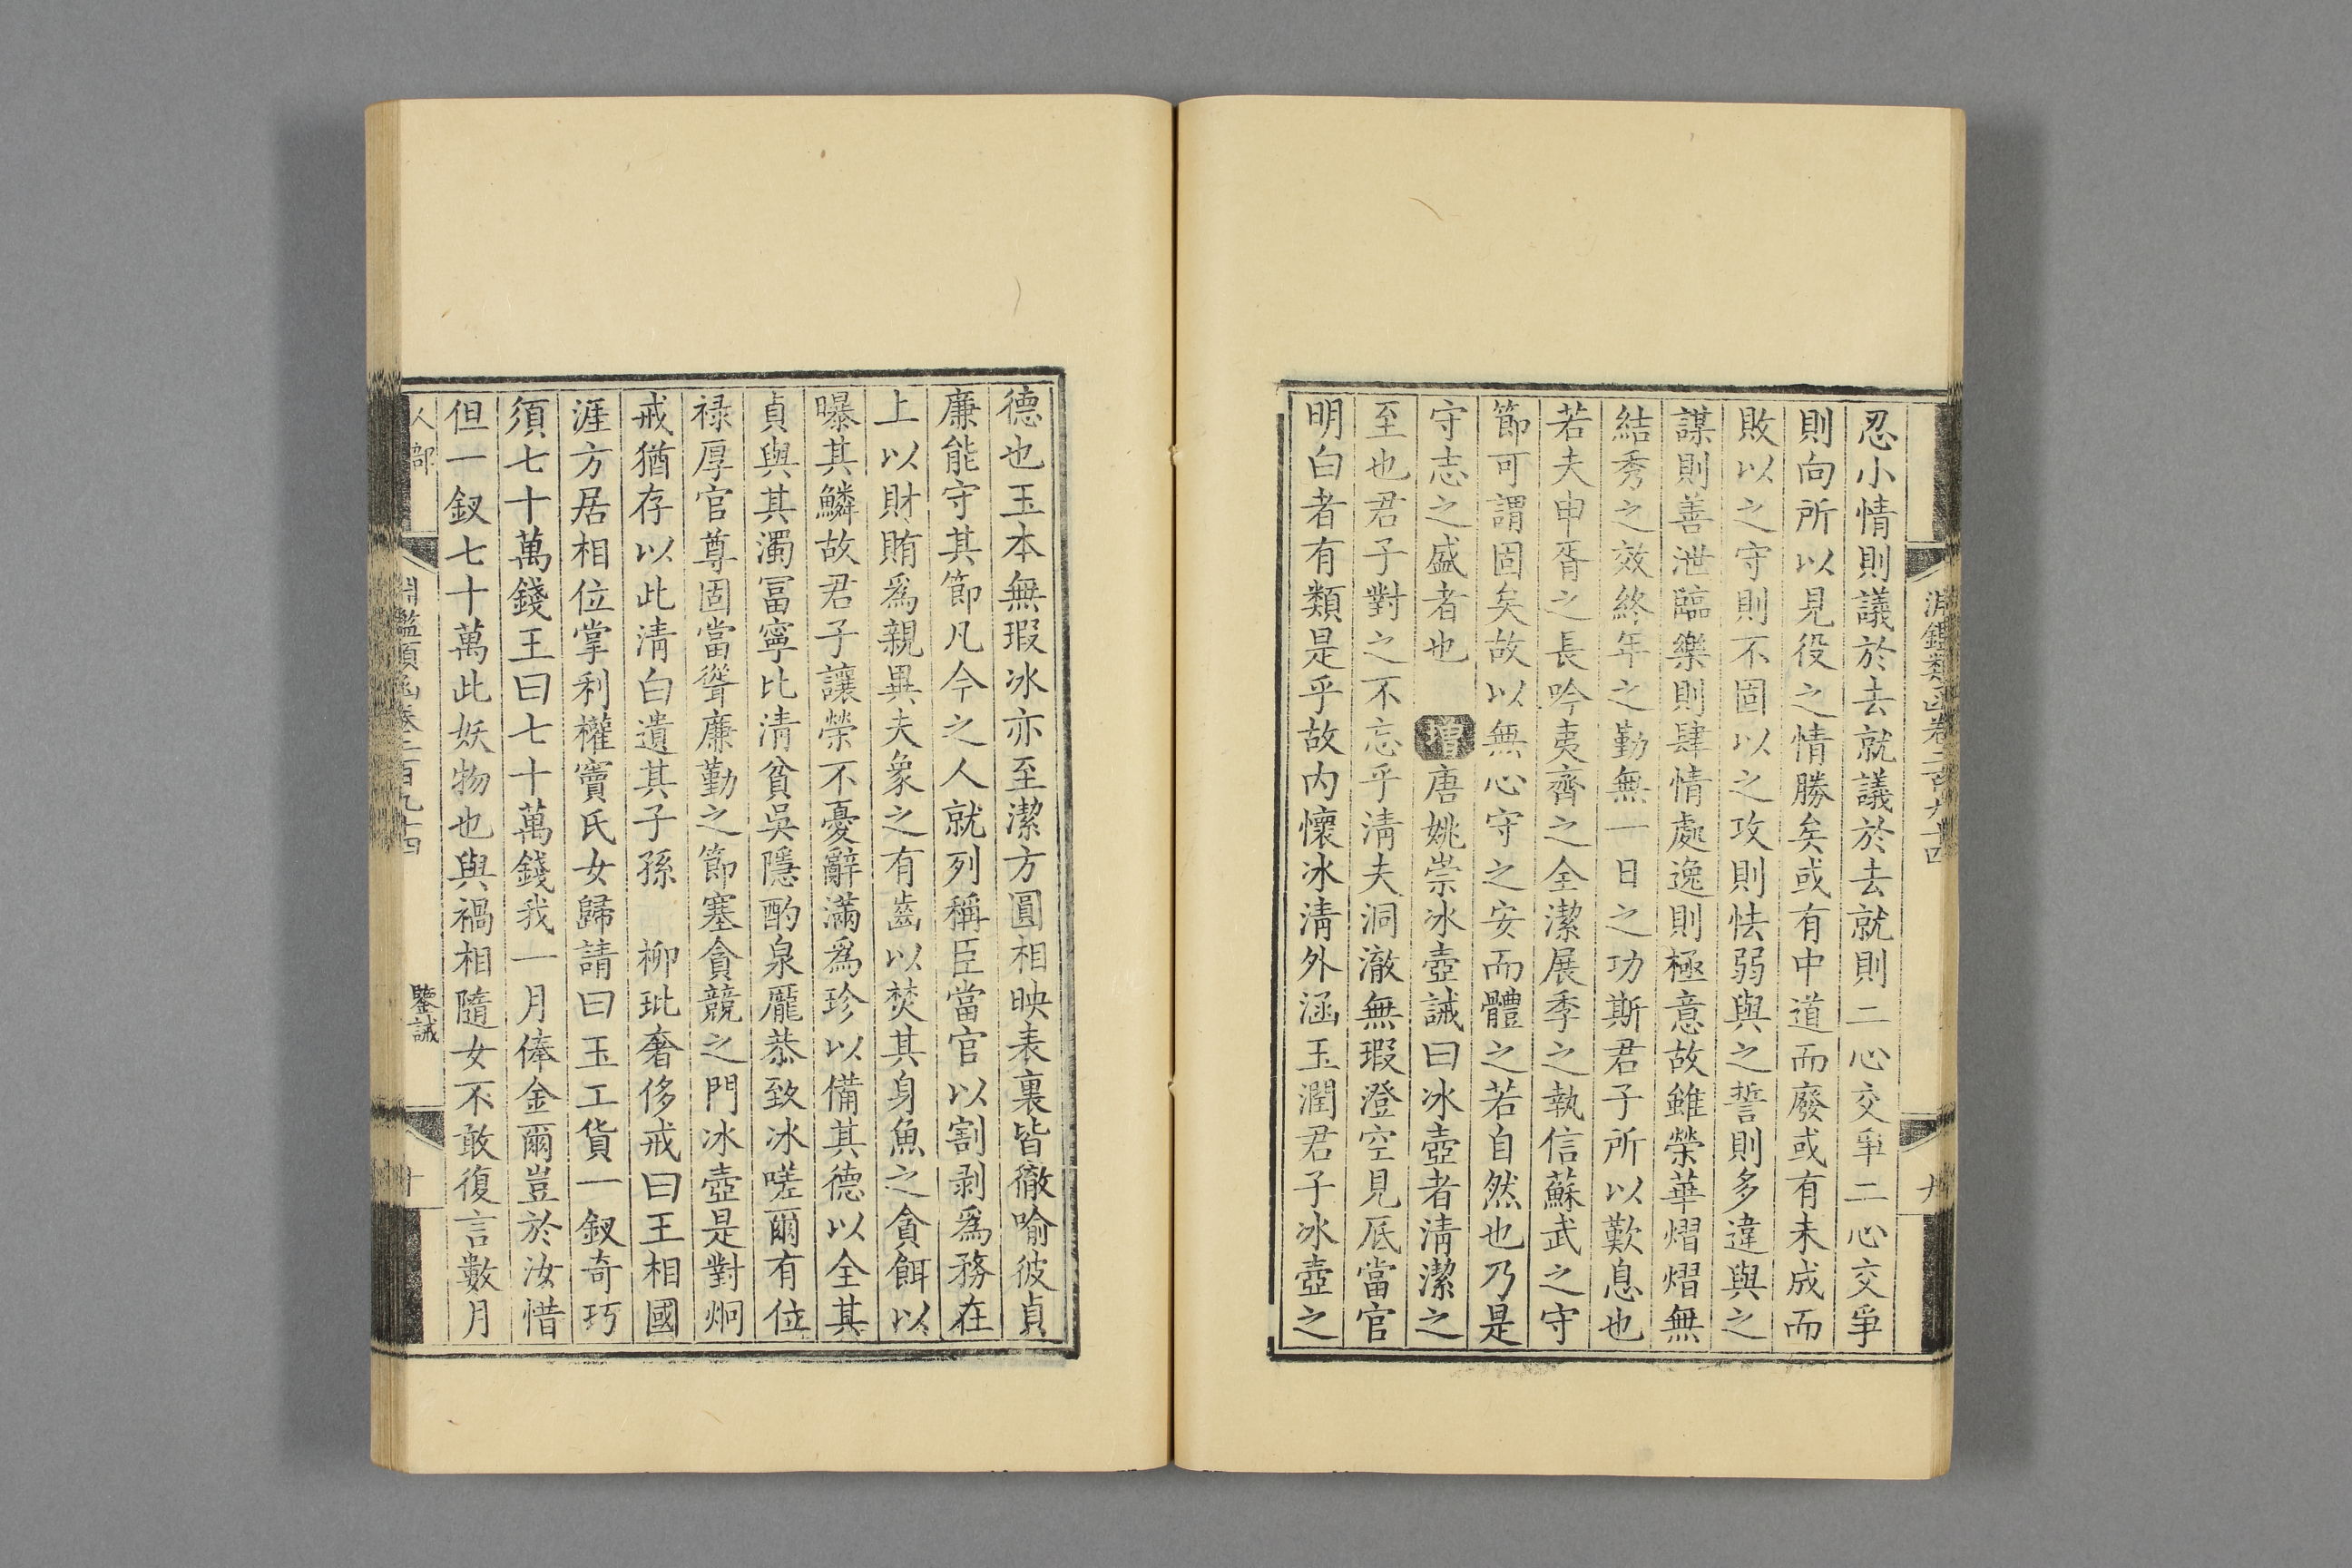 忍小情則議於去就議於去就則二心交爭二心交爭
則向所以見役之情勝矣或有中道而廢或有未成而
敗以之守則不固以之攻則怯弱與之誓則多違與之
謀則善泄臨樂則肆情處逸則極意故雖榮華熠熠無
結秀之效終年之勤無一日之功斯君子所以歎息也
若夫申胥之長吟夷齊之全潔展季之執信蘇武之守
節可謂固矣故以無心守之安而體之若自然也乃是
守志之盛者也 增唐姚崇冰壺誡曰冰壺者淸潔之
至也君子對之不忘乎淸夫洞澈無瑕澄空見底當官
明白者有類是乎故內懷冰淸外涵玉潤君子冰壺之
德也玉本無瑕冰亦至潔方圓相映表裏皆徹喻彼貞
廉能守其節凡今之人就列稱臣當官以割剥爲務在
上以財賄爲親異夫象之有齒以焚其身魚之貪餌以
曝其鱗故君子讓榮不憂辭滿爲珍以備其德以全其
貞與其濁冨寧比清貧吳隱酌泉龐恭致冰嗟爾有位
禄厚官尊固當聳廉勤之節塞貪競之門冰壺是對炯
戒猶存以此淸白遺其子孫 柳玭奢侈戒曰王相國
涯方居相位掌利權竇氏女歸請曰玉工貨一釵奇巧
須七十萬錢王曰七十萬錢我一月俸金爾豈於汝惜
但一釵七十萬此妖物也與禍相隨女不敢復言數月
人部
淵鑑類函卷二百九十四
鑒誡
十